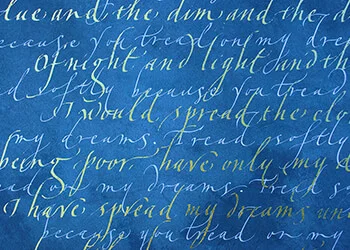 blue and the dim and the d
because you tread on my dre
Of night and light and th
ad softly because you tread
I would spread the clo
my dreams. Tread softly
being poor have only my d
ead on my dreams. Tread so
I have spread my dreams und
because you tread on my